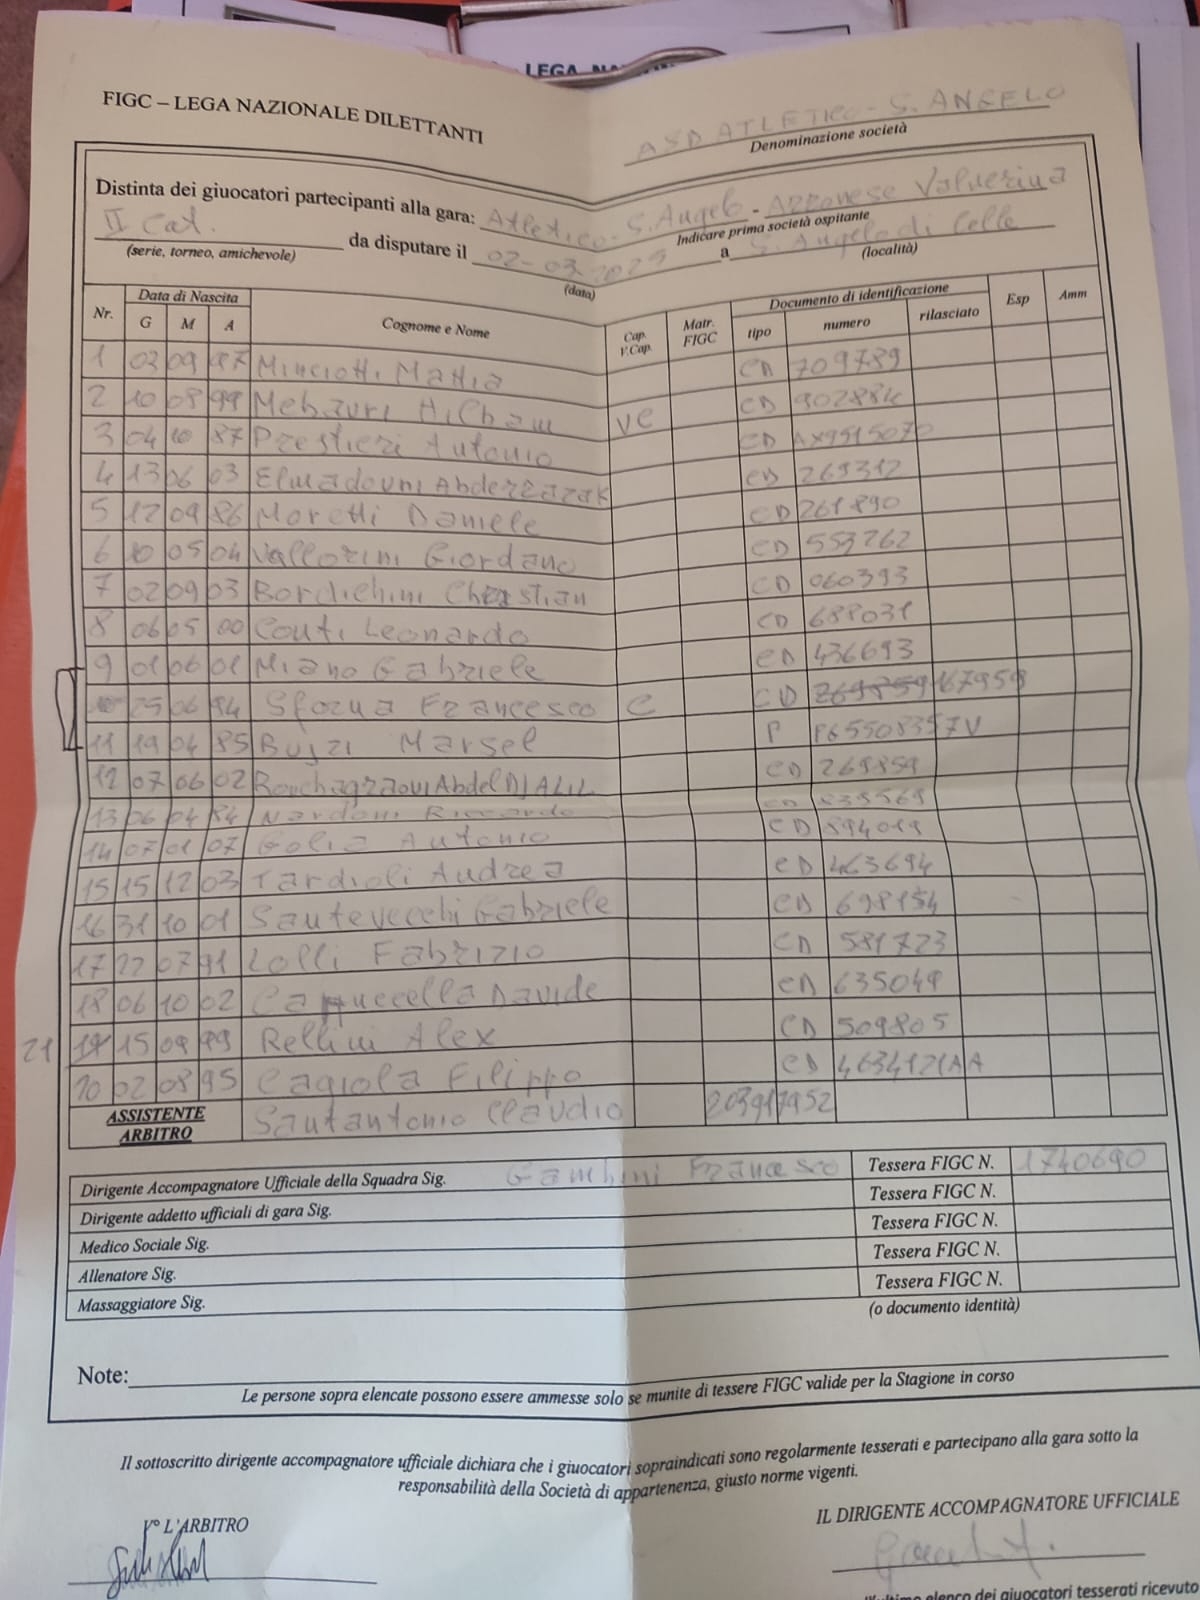 LEGA
FIGC – LEGA NAZIONALE DILETTANTI
ASD ATLETICO - S. ANGELO
Denominazione società
Distinta dei giuocatori partecipanti alla gara: Atletico - S. Angelo - Arronese Valnerina
Indicare prima società ospitante
II Cat. da disputare il 02-03-2025 a S. Angelo di Celle
(serie, torneo, amichevole) (data) (località)
Nr. Data di Nascita Cognome e Nome Cap. V.Cap. Matr. FIGC Documento di identificazione Esp Amm
G M A tipo numero rilasciato
1 03 09 97 Minciotti Mattia CD 709789
2 10 08 99 Mebauri Hicham VC CD 902884
3 04 10 87 Prestieri Antonio CD AX9515070
4 13 06 03 Elmadouni Abderrazak CD 269312
5 12 09 86 Moretti Daniele CD 261890
6 10 05 04 Vallorini Giordano CD 553262
7 02 09 03 Bordichini Christian CD 060393
8 06 05 00 Conti Leonardo CD 688031
9 01 06 01 Miano Gabriele CD 436693
25 06 94 Sforna Francesco C CD 269859 167959
11 19 04 85 Bujzi Marsel P P65508357V
12 07 06 02 Bouchagraoui Abdel DJALIL CD 269859
13 06 04 84 Nardoni Riccardo CD 839569
14 07 01 07 Golia Antonio CD 894019
15 15 12 03 Tardioli Andrea CD 463694
16 31 10 01 Santevecchi Gabriele CD 698154
17 22 07 91 Lolli Fabrizio CD 581723
18 06 10 02 Capuccella Davide CD 635049
21 19 15 09 99 Rellini Alex CD 509805
20 02 08 95 Cagiola Filippo CD 4634121AA
ASSISTENTE ARBITRO Santantonio Claudio 203917952
Dirigente Accompagnatore Ufficiale della Squadra Sig. Gambini Francesco Tessera FIGC N. 1740690
Dirigente addetto ufficiali di gara Sig. Tessera FIGC N.
Medico Sociale Sig. Tessera FIGC N.
Allenatore Sig. Tessera FIGC N.
Massaggiatore Sig. Tessera FIGC N.
(o documento identità)
Note:
Le persone sopra elencate possono essere ammesse solo se munite di tessere FIGC valide per la Stagione in corso
Il sottoscritto dirigente accompagnatore ufficiale dichiara che i giuocatori sopraindicati sono regolarmente tesserati e partecipano alla gara sotto la
responsabilità della Società di appartenenza, giusto norme vigenti.
V° L'ARBITRO
IL DIRIGENTE ACCOMPAGNATORE UFFICIALE
elenco dei giuocatori tesserati ricevuto